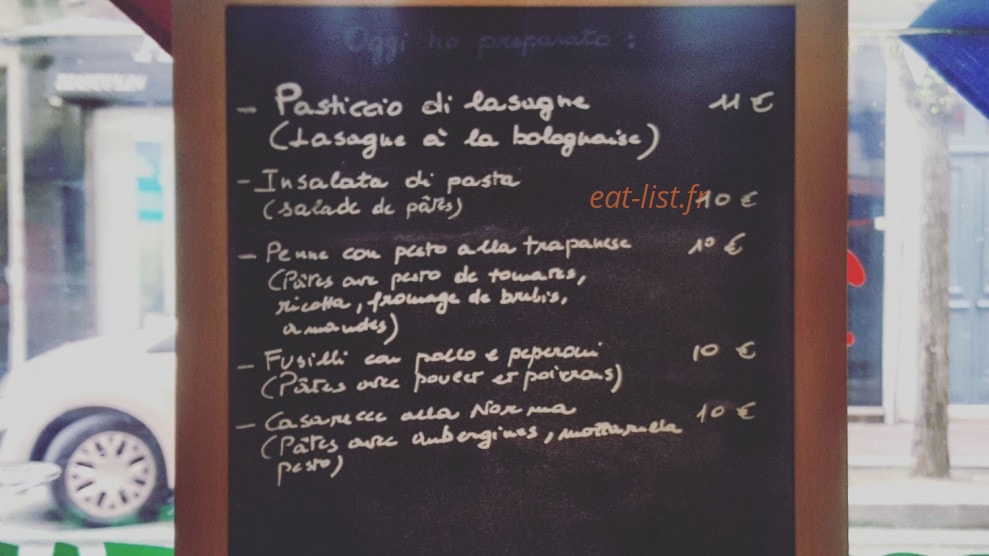 Oggi ho preparato :
- Pasticcio di lasagne 11 €
(Lasagne à la bolognaise)
- Insalata di pasta
(salade de pâtes) 10 €
eat-list.fr
- Penne con pesto alla trapanese 10 €
(Pâtes avec pesto de tomates,
ricotta, fromage de brebis,
amandes)
- Fusilli con pollo e peperoni 10 €
(Pâtes avec poulet et poivrons)
- Casarecce alla Norma 10 €
(Pâtes avec aubergines, mozzarella
pesto)